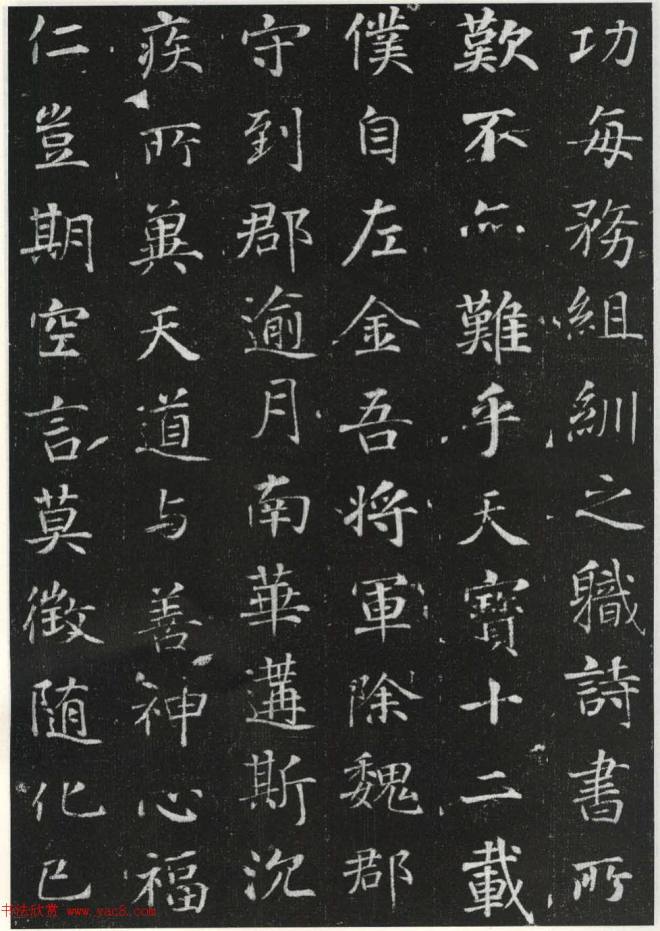 功每務組紃之軄詩書所
歎不亦難乎天寶十二載
僕自左金吾將軍除魏郡
守到郡逾月南華遘斯沉
疾所冀天道与善神心福
仁豈期空言莫徵随化已
书法欣赏 www.yac8.com